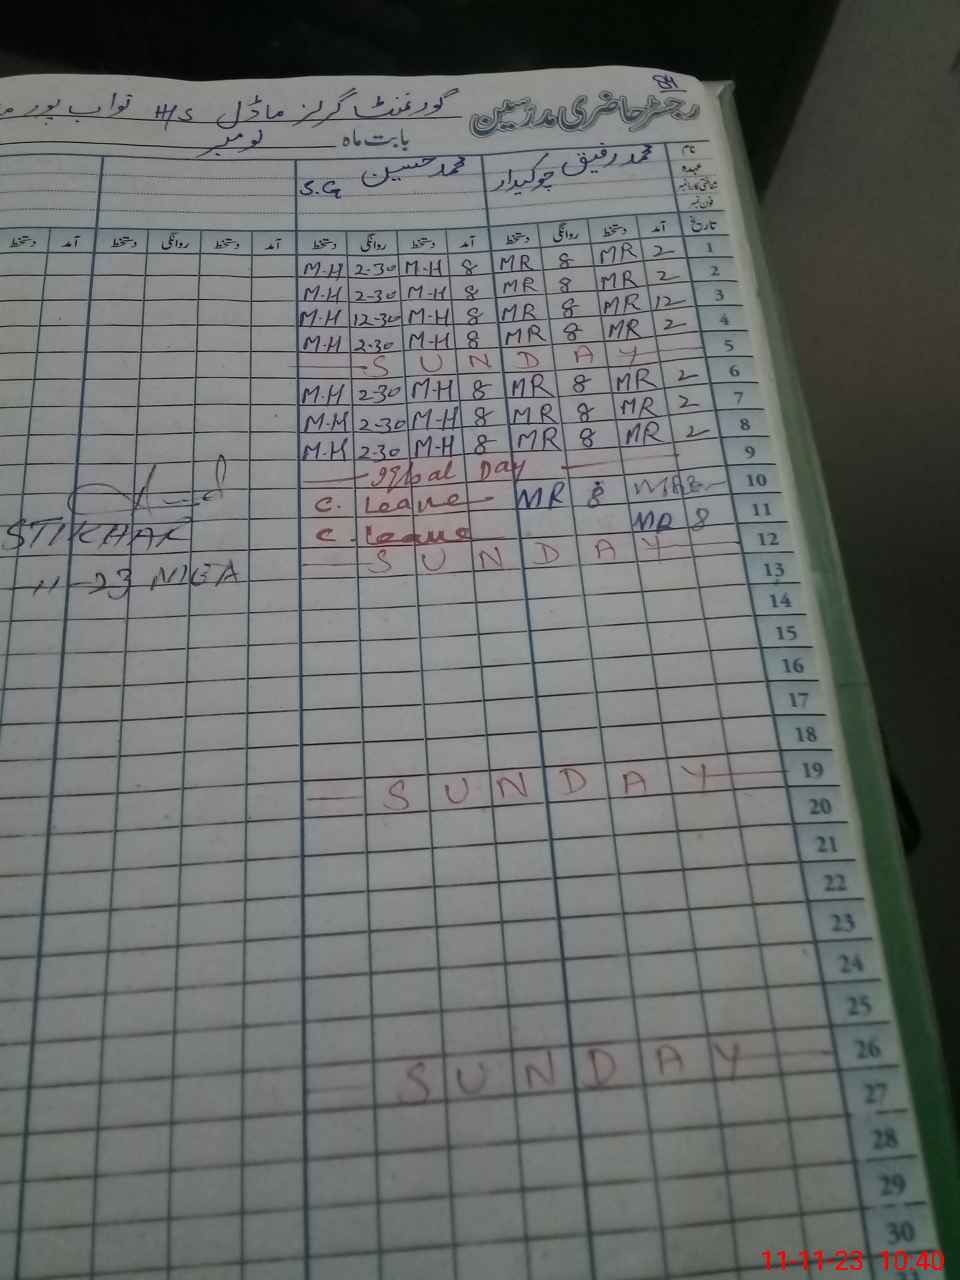 84
رجسٹر حاضری مدرسین گورنمنٹ گرلز ماڈل H/S نواب پور
بابت ماہ نومبر
نام محمد رفیق محمد حسین
عہدہ چوکیدار S.G
شناختی کارڈ نمبر
فون نمبر
تاریخ آمد دستخط روانگی دستخط آمد دستخط روانگی دستخط آمد دستخط روانگی دستخط آمد دستخط
1 2 MR 8 MR 8 M-H 2-30 M-H
2 2 MR 8 MR 8 M-H 2-30 M-H
3 12 MR 8 MR 8 M-H 12-30 M-H
4 2 MR 8 MR 8 M-H 2-30 M-H
5 SUNDAY
6 2 MR 8 MR 8 M-H 2-30 M-H
7 2 MR 8 MR 8 M-H 2-30 M-H
8 2 MR 8 MR 8 M-H 2-30 M-H
9 Iqbal Day
10 8 MR 8 MR C. Leave
11 8 MR C. Leave
12 SUNDAY
13
14
15
16
17
18
19 SUNDAY
20
21
22
23
24
25
26 SUNDAY
27
28
29
30
STIKHAR
11-23
11-11-23 10:40